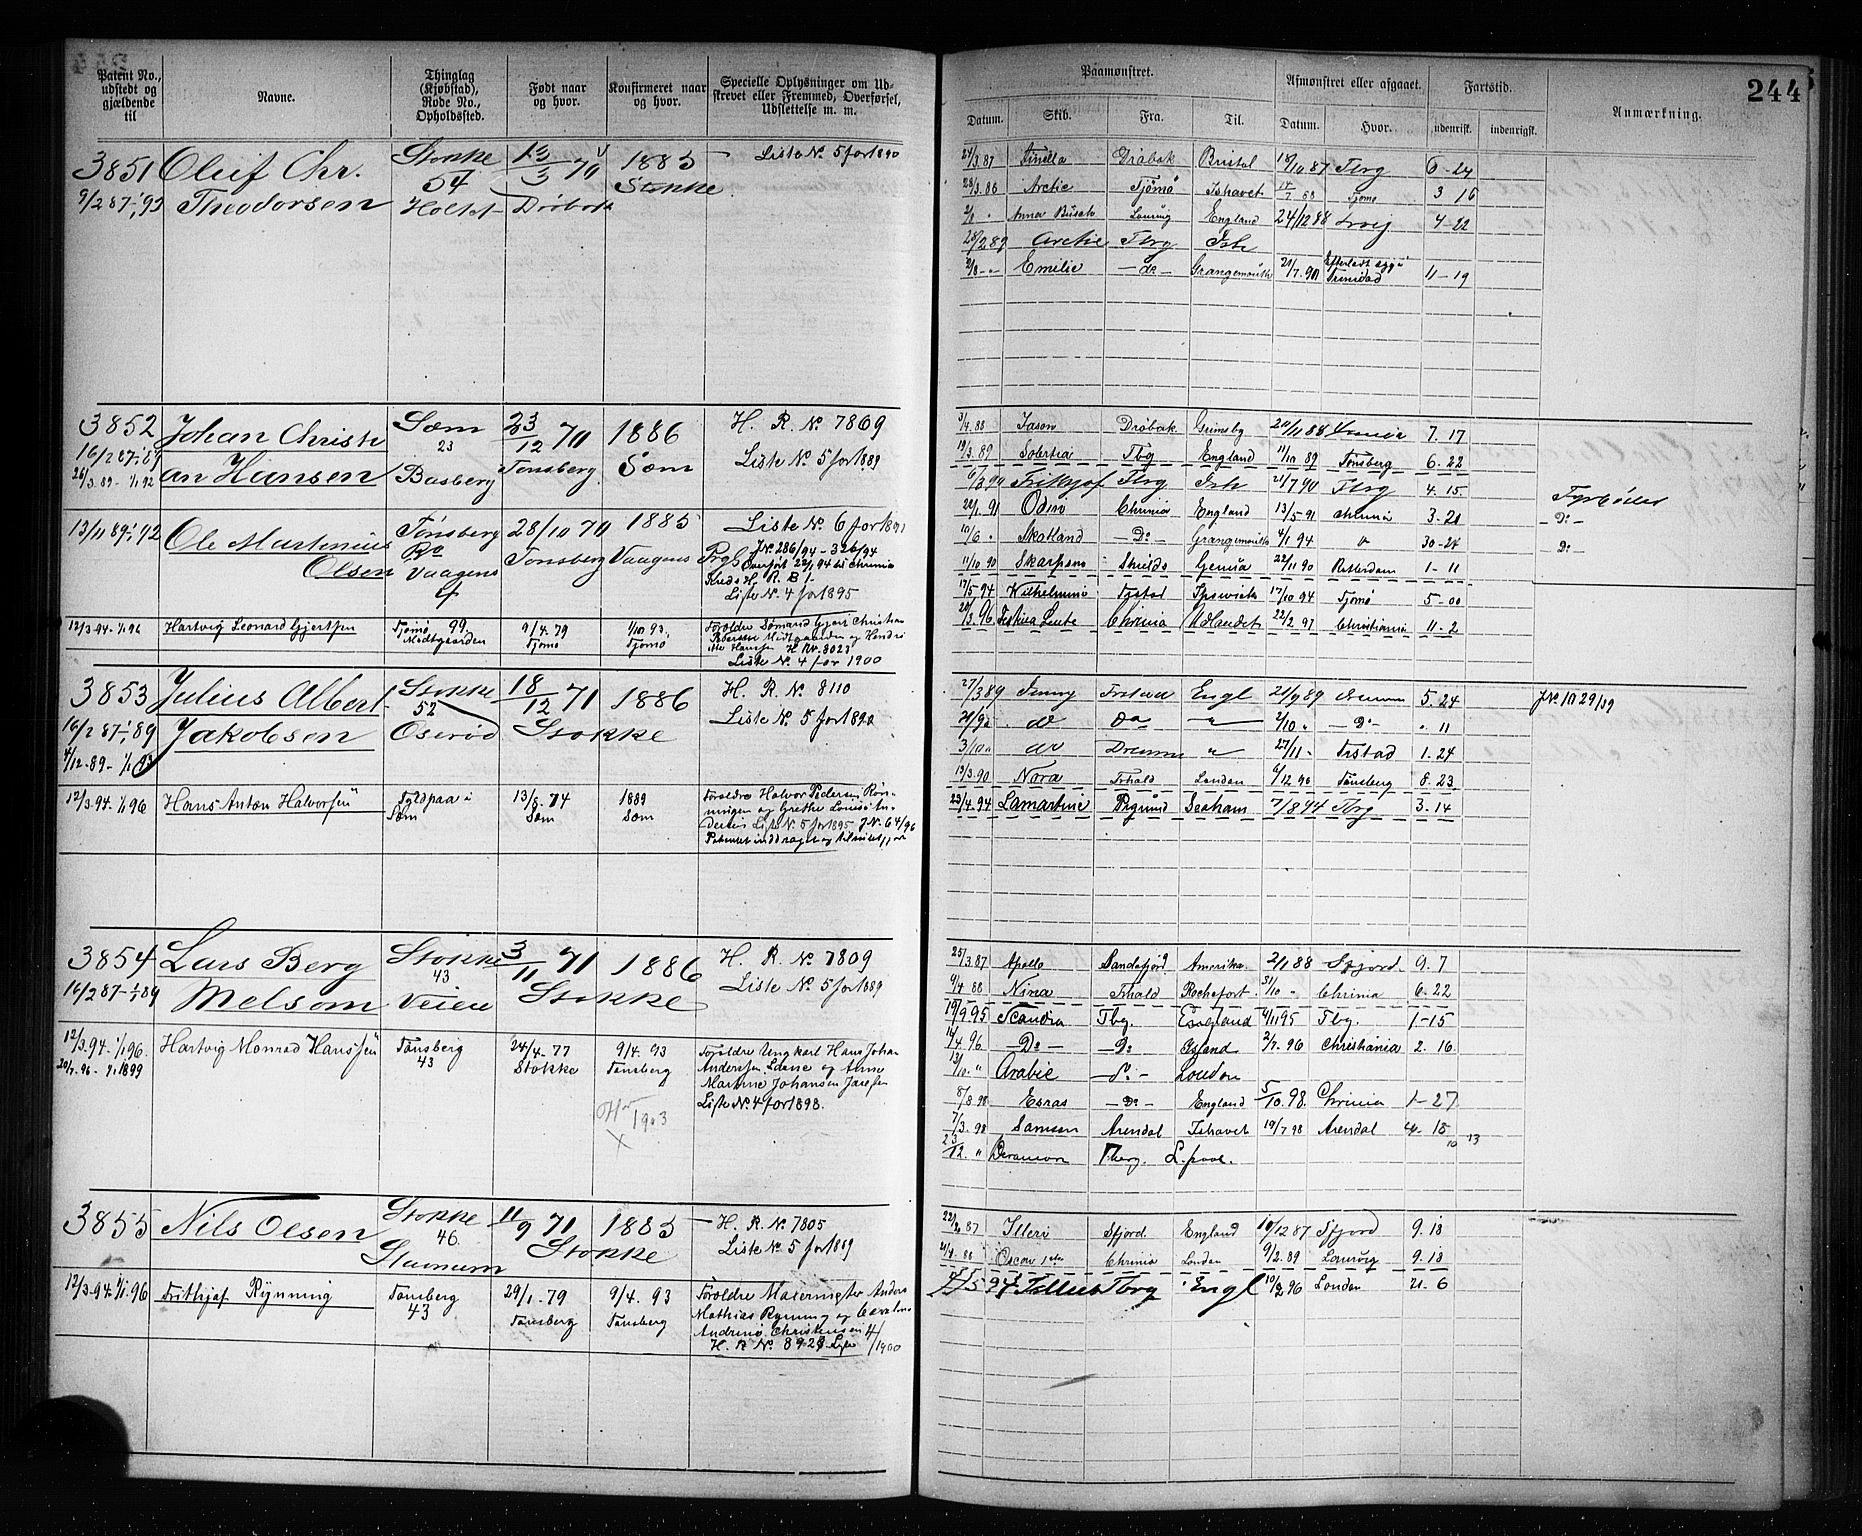 244
Patent No., udstedt og gjældende til
Navne.
Thinglag (Kjøbstad), Rode No., Opholdssted.
Født naar og hvor.
Konfirmeret naar og hvor.
Specielle Oplysninger om Udskrevet eller Fremmed, Overførsel, Udslettelse m. m.
Paamønstret.
Afmønstret eller afgaaet.
Fartstid.
Anmærkning.
Datum. Skib. Fra. Til. Datum. Hvor. udenrisk. indenrigsk.
3851 Oluf Chr. Stokke 13/3 70 1885 Liste No. 5 for 1890
9/2 87-1/1 93 Theodorsen 54 Stokke
Drøbak
3852 Johan Christi Sæm 23/12 70 1886 H. R. No. 7869
16/2 87-1/1 89 an Hansen 23 Tønsberg Sæm Liste No. 5 for 1889
26/3.89-1/1 92 Basberg
13/11 89-1/1 92 Ole Martinius Tønsberg 28/10 70 1885 Liste No. 6 for
Olsen Vaagens Tønsberg Vaagens JNo. 286/94 - 326/94
Overført 22/1 94 til Chrania
Kreds H. R. B 1-
Liste No. 4 for 1895
12/3.94-1/1 96 Hartvig Leonard Gjertsen Tjømø 99 9/4. 79 1/10 93 Forældre Sømand Gjert Christian
Midtgaarden Tjømø Tjømø Pedersen Midtgaarden og Hendri
Hansen H R No. 8023
Liste No. 4 for 1900
3853 Julius Albert Stokke 18/12 71 1886 H. R. No. 8110
16/2 87-1/1 89 Jakobsen 52 Stokke Liste No. 5 for
4/12-89-1/1 93 Oserød
12/3.94.1/1 96 Hans Anton Halvorsen Fyldpaa i 13/5-74 1889 Forældre Halvor Pedersen Røn-
Sæm Sæm Sæm ningen og Grethe Lovise An-
dersen Liste No. 5 for 1895 JNo. 64/96
Patentet inddraget og
3854 Lars Berg Stokke 3/11 71 1886 H. R. No. 7809
16/2 87-1/1 89 Melsom 43 Stokke Liste No. 5 for 1889
Veien
12/3.94.1/1 96. Hartvig Monrad Hanssen Tønsberg 24/4-77 9/4. 93 Forældre Ungkarl Hans Johan
20/7.96-1/1 1899 43 Stokke Tønsberg Anderssen og Anne
Martine Johansen
Liste No. 4 for 1898.
1903
X
3855 Nils Olsen Stokke 11/9 71 1885 H. R. No. 7805
46. Stokke Liste No. 5 for 1889
12/3.94.1/1 96 Frithjof Rynning Tønsberg 29/1.79 9/4. 93 Forældre Malermester Anders
43 Tønsberg Tønsberg Mathias Rynning og
Andrine Christensen
H. R No. 8929 Liste 4/1900
24/3.87 Drøbak Bristol 18/10 87 Tbrg 6-24
28/3.88 Arctic Tjømø Ishavet 14/7 88 Tjømø 3 16
Anna Laurvig England 24/12 88 Lvig 4-22
28/2 89 Arctic Tbrg Ish
Emilie -do- Grangemouth 21/7.90 Trinidad 11-19
3/4.88 Jason Drøbak Grimsby 20/11 88 7.17
19/3.89 Solertia Tbg England 11/10 89 Tønsberg 6.22
6/3 90 Fritjof Tbrg Ish 21/7 90 Tbrg 4.15
22/1.91 Odin Chrania England 13/5.91 Chrania 3-20 Fyrbøder
10/6 " Skotland -Do- Grangemouth 4/1 94 30-24 -Do-
11/10 90 Skarpsno Shields Genua 22/11 90 Rotterdam 1-11 Do
17/5.94 Wilhelmine Ipswich 17/10.94 Tjømø 5-00
20/3.96 Chrania Udlandet 22/2.97 Christiania 11-2
27/3 89 Fanny Frstad Engl 21/9 89 5.24 JNo. 1029/89
do Do 2/10 " -Do- ".11
3/10 " do 27/11 - Frstad 1.24
13/3.90 Nora Frhald London 6/12 90 Tønsberg 8.23
23/4.94 Lamartine Prsgrund Seaham 7/8 94 Tbrg 3.14
25/3.87 Apollo Sandefjord Amerika. 2/1 88 Sfjord. 9.7
9/4 88 Nina Frhald Rochefort. 31/10 - Chrania 6-22
19/9.95 Scandia Tbg. England 4/11 95 Tbg. 1-15
14/4.96 -Do- -Do- Island 2/7.96 Christiania 2.16
13/10. " Arabic -Do- London
5/8.98 Esras -Do- England 5/10.98. Chrania 1-27
7/3.98 Samson Arendal Ishavet 19/7 98 Arendal 4.15
23/12. " Tbrg. L.pool.
22/2 87 Illeri Sfjord. England 10/12 87 Sfjord 9.18
Oscar 1ste Chrania London 9/2.89 Laurvig 9.18
5 94 Tellus Tbrg Engl 10/2 96 London 21.6